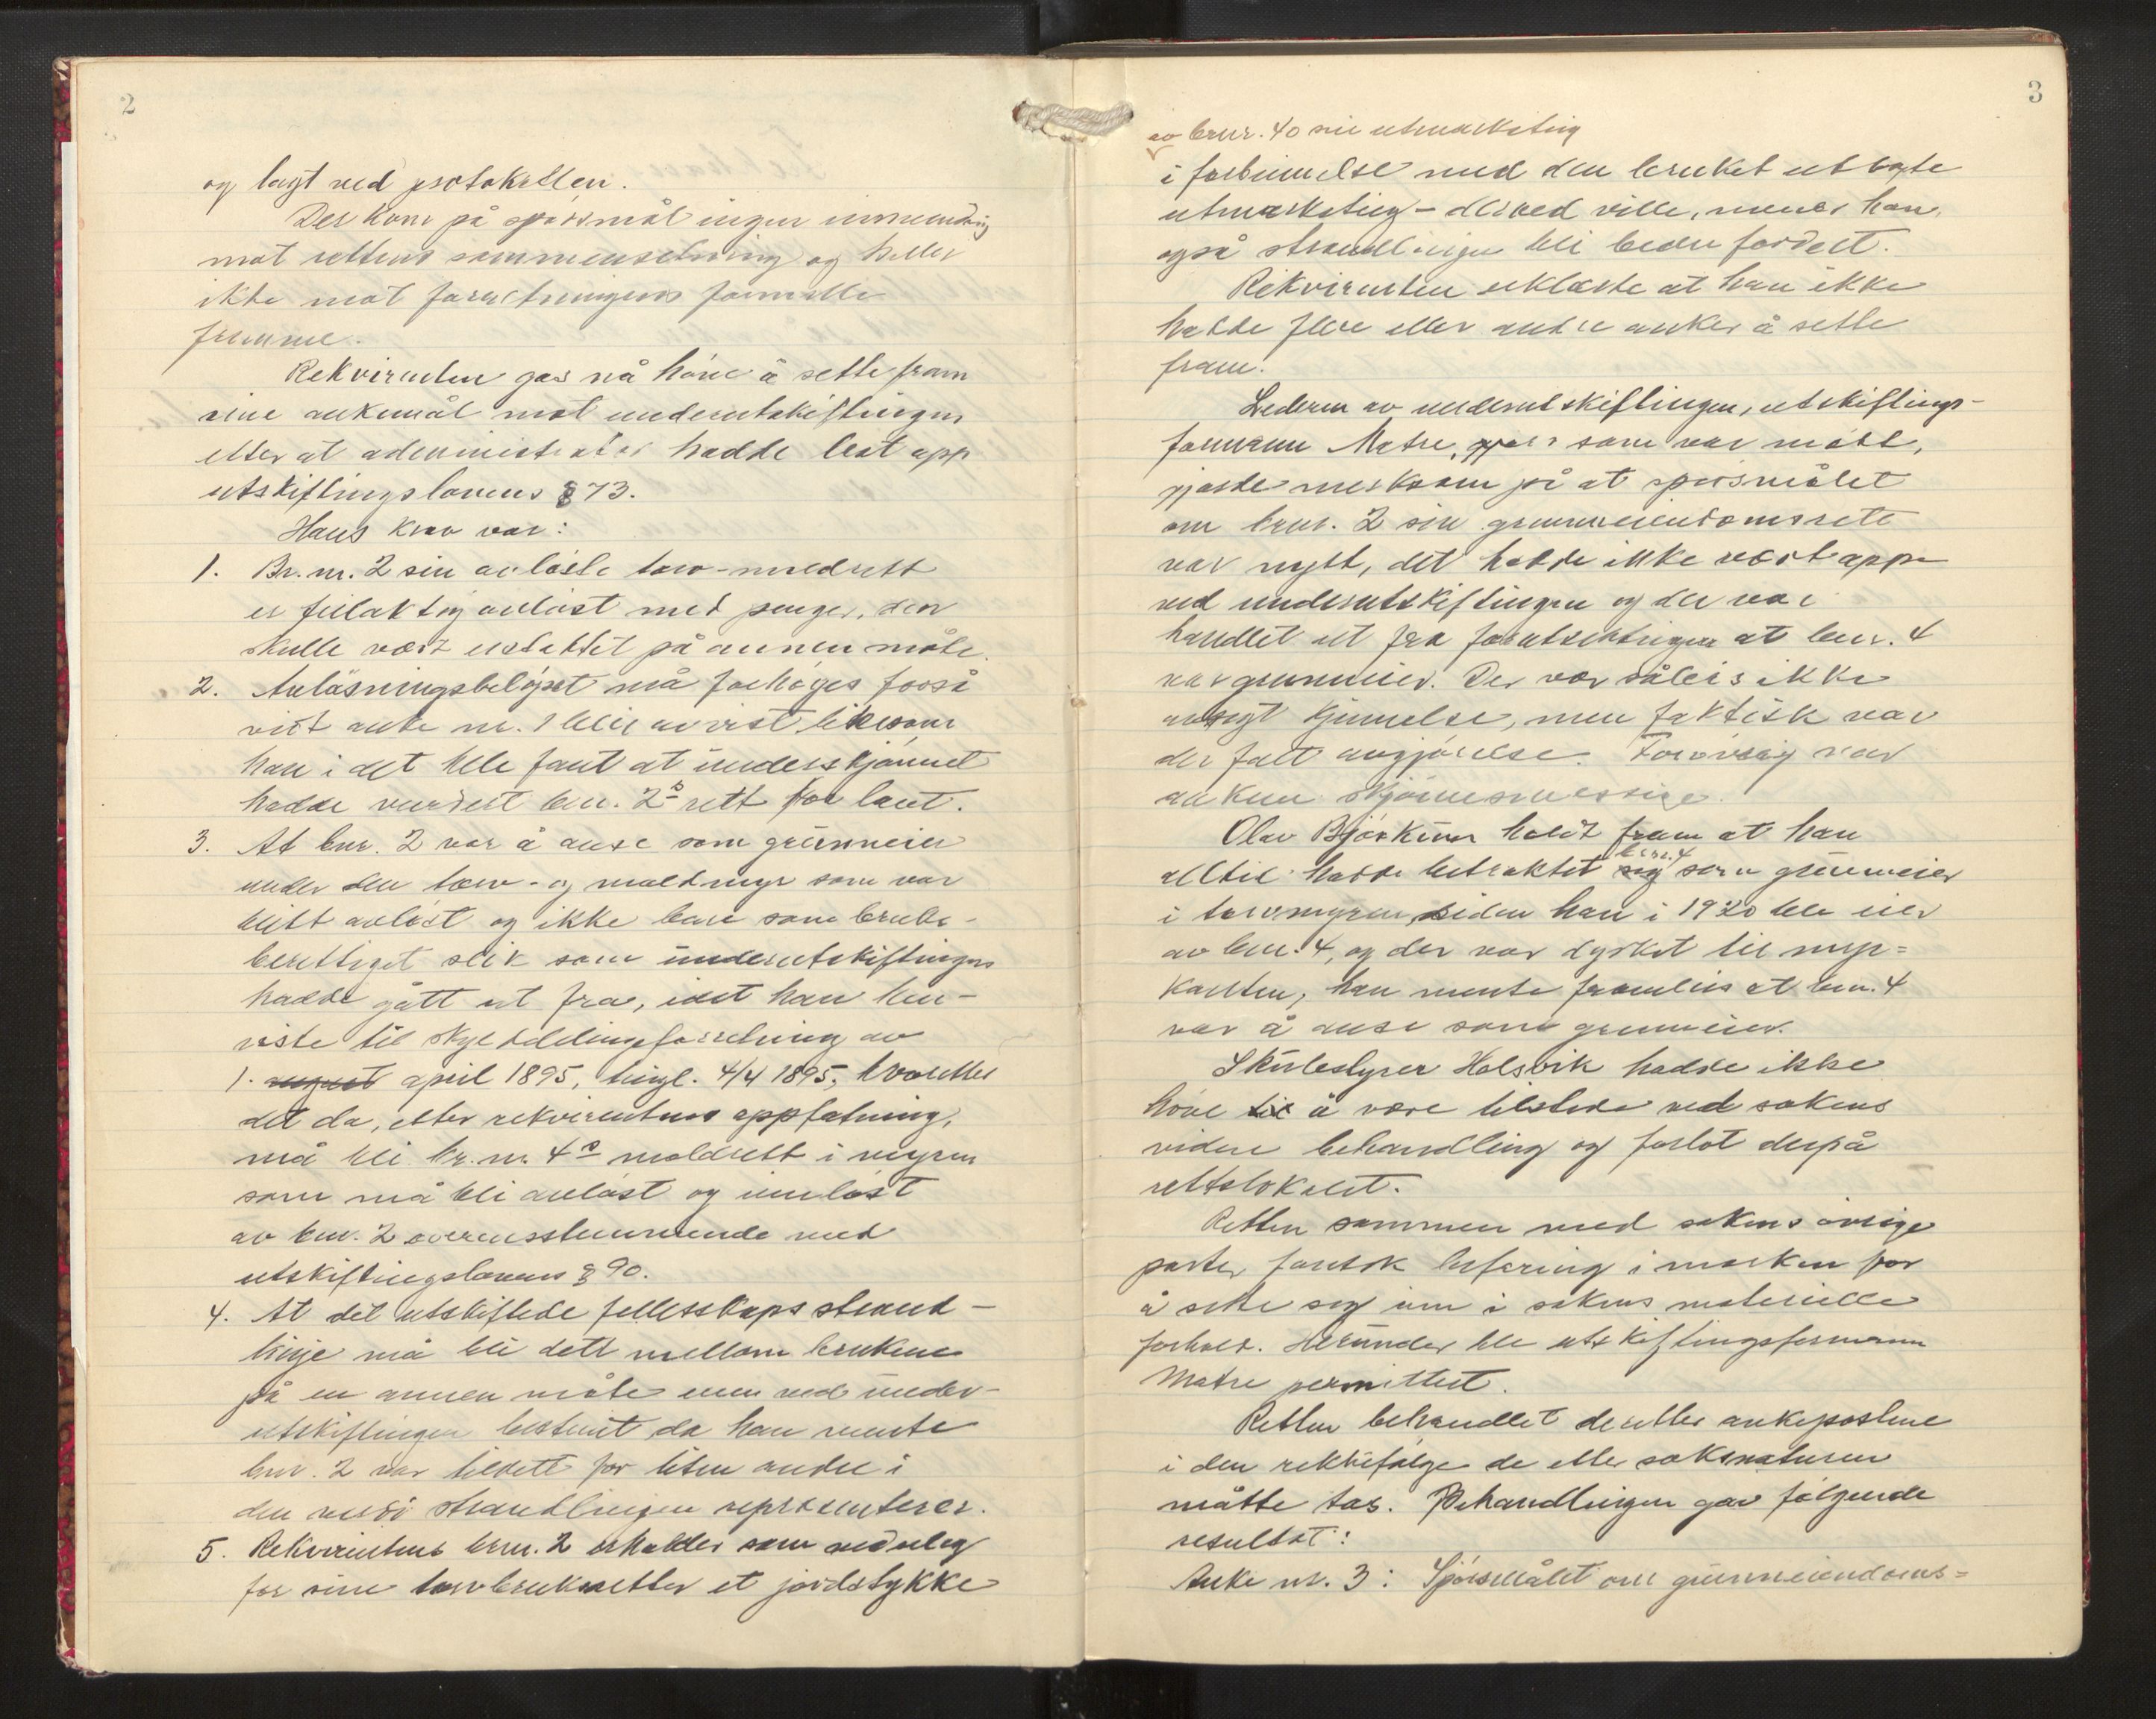 2
og lagt ved protokollen.
Det kom på spørsmål ingen innvending
mot rettens sammensetning og heller
ikke mot forretningens formelle
fremme.
Rekvirenten gas nå höve å sette fram
sine ankemål mot underutskiftingen
etter at administrator hadde lest opp
utskiftingslovens § 73.
Hans krav var:
1. Br.nr. 2 sin avløste torv-moldrett
er feilaktig avløst med penger, den
skulle vært erstattet på annen måte.
2. Avløsningsbeløpet må forhöges forså
vidt anke nr. 1 blir avvist likesom
han i det hele fant at underskjønnet
hadde vurdert bnr. 2s rett for lavt.
3. At bnr. 2 var å anse som grunneier
under den torv- og moldmyr som var
blitt avløst og ikke bare som bruks-
berettiget slik som underutskiftingen
hadde gått ut fra, idet han hen-
viste til skylddelingsforretning av
1. august april 1895, tingl. 4/4 1895, hvoretter
det da, etter rekvirentens oppfatning,
må bli br.nr. 4s moldrett i myren
som må bli avløst og innløst
av bnr. 2 overensstemmende med
utskiftingslovens § 90.
4. At det utskiftede fellesskaps strand-
linje må bli delt mellom brukene
på en annen måte enn ved under-
utskiftingen bestemt da han mente
bnr. 2 var tildelt for liten andel i
den verdi strandlinjen representerer.
5. Rekvirentens bnr. 2 erholder som vederlag
for sine torvbruksretter et jordstykke
3
av bnr. 40 sin utmarksteig
i forbinnelse med den bruket utlagte
utmarksteig - derved ville, mener han,
også strandlinjen bli bedre fordelt.
Rekvirenten erklærte at han ikke
hadde flere eller andre anker å sette
fram.
Lederen av underutskiftingen, utskiftings-
formann Matre, som var møtt,
gjorde merksam på at spørsmålet
om bnr. 2 sin grunneiendomsrett
var nytt, det hadde ikke vært oppe
ved underutskiftingen og der var
handlet ut fra forutsetningen at bnr. 4
var grunneier. Der var således ikke
avsagt kjennelse, men faktisk var
der falt avgjørelse. Forøvrig var
anken skjønnsmessige.
Olav Bjørkum holdt fram at han
alltid hadde betraktet seg bnr. 4 som grunneier
i torvmyren, siden han i 1920 ble eier
av bnr. 4, og der var dyrket til myr=
kanten, han mente fremdeles at bnr. 4
var å anse som grunneier.
Skulestyrer Holsvik hadde ikke
höve til å være tilstede ved sakens
videre behandling og forlot derpå
rettslokalet.
Retten sammen med sakens øvrige
parter foretok befaring i marken for
å sette seg inn i sakens materielle
forhold. Herunder ble utskiftingsformann
Matre permittert.
Retten behandlet deretter ankepostene
i den rekkefølge de etter saksnaturen
måtte tas. Behandlingen gav følgende
resultat:
Anke nr. 3: Spørsmålet om grunneiendoms=